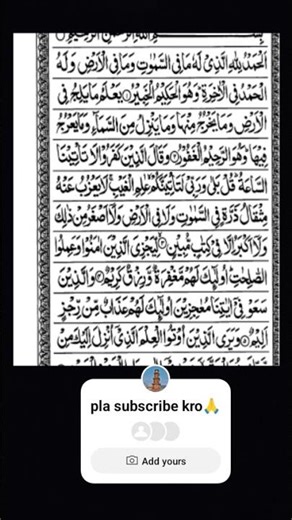 اَلْحَمْدُ لِلّٰهِ الَّذِیْ لَهٗ مَا فِی السَّمٰوٰتِ وَمَا فِی الْاَرْضِ وَلَهُ
الْحَمْدُ فِی الْاٰخِرَةِ وَهُوَ الْحَكِیْمُ الْخَبِیْرُ یَعْلَمُ مَا یَلِجُ فِی
الْاَرْضِ وَمَا یَخْرُجُ مِنْهَا وَمَا یَنْزِلُ مِنَ السَّمَآءِ وَمَا یَعْرُجُ
فِیْهَا وَهُوَ الرَّحِیْمُ الْغَفُوْرُ وَقَالَ الَّذِیْنَ كَفَرُوْا لَا تَاْتِیْنَا
السَّاعَةُ قُلْ بَلٰی وَرَبِّیْ لَتَاْتِیَنَّكُمْ عٰلِمِ الْغَیْبِ لَا یَعْزُبُ عَنْهُ
مِثْقَالُ ذَرَّةٍ فِی السَّمٰوٰتِ وَلَا فِی الْاَرْضِ وَلَاۤ اَصْغَرُ مِنْ ذٰلِكَ
وَلَاۤ اَكْبَرُ اِلَّا فِیْ كِتٰبٍ مُّبِیْنٍ لِّیَجْزِیَ الَّذِیْنَ اٰمَنُوْا وَعَمِلُوا
الصّٰلِحٰتِ اُولٰٓئِكَ لَهُمْ مَّغْفِرَةٌ وَّرِزْقٌ كَرِیْمٌ وَالَّذِیْنَ
سَعَوْ فِیْۤ اٰیٰتِنَا مُعٰجِزِیْنَ اُولٰٓئِكَ لَهُمْ عَذَابٌ مِّنْ رِّجْزٍ
اَلِیْمٌ وَیَرَی الَّذِیْنَ اُوْتُوا الْعِلْمَ الَّذِیْۤ اُنْزِلَ اِلَیْكَ مِنْ
pla subscribe kro🙏
Add yours